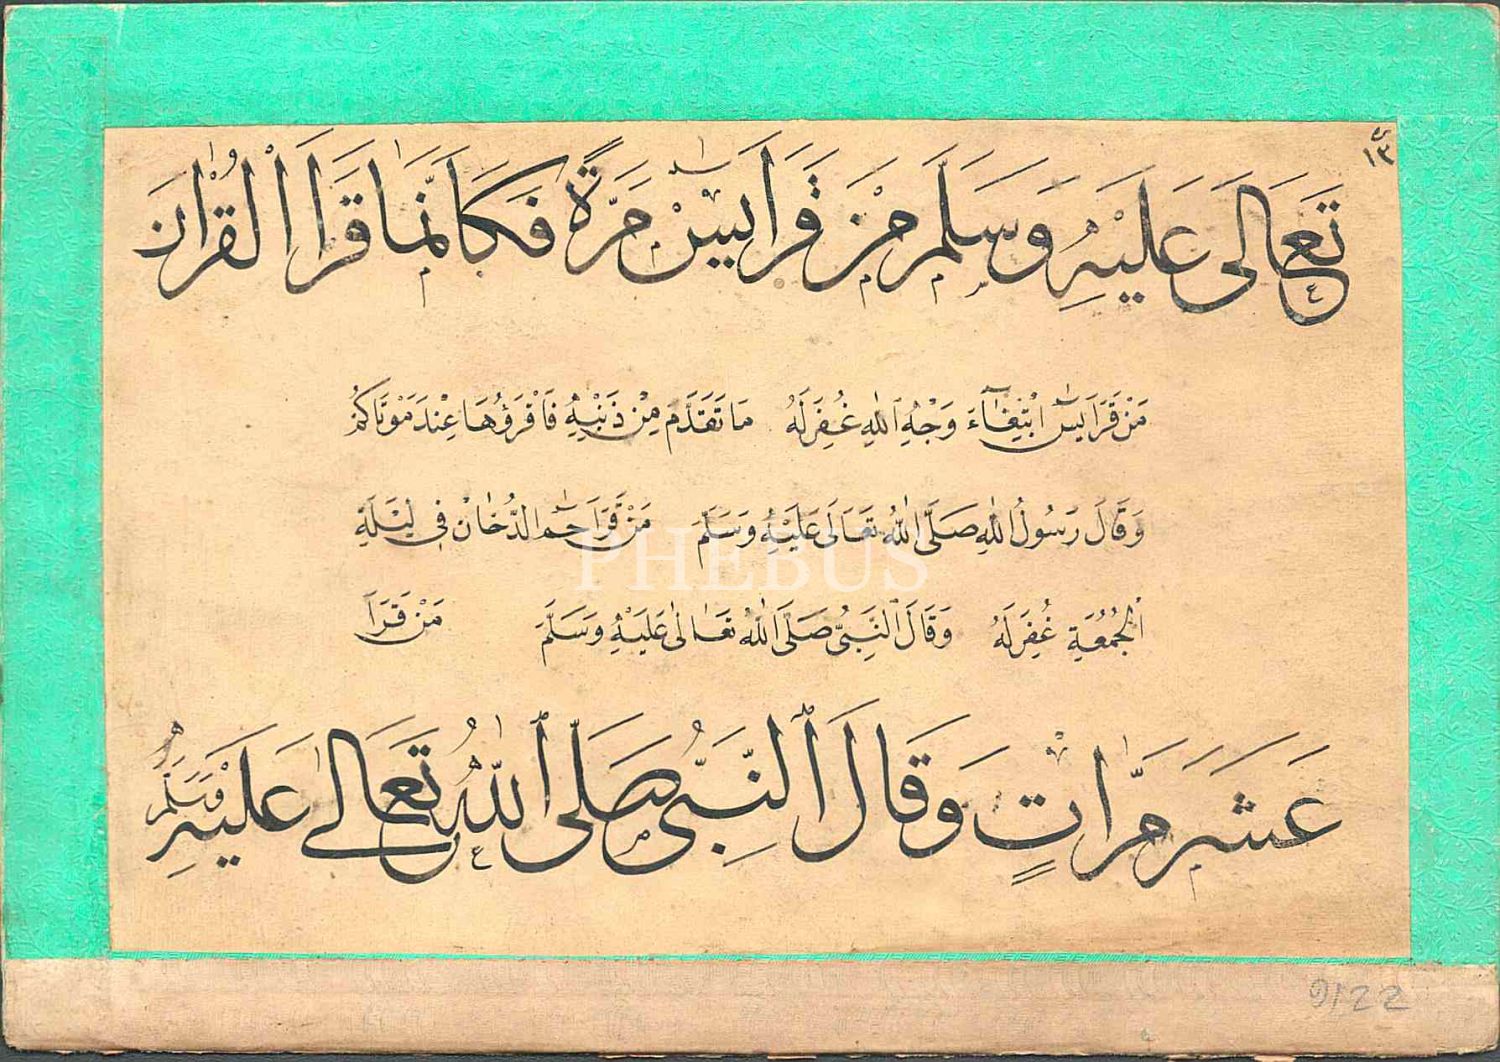 ١٣
تَعَالَى عَلَيْهِ وَسَلَّمَ مَنْ قَرَأَ يٰسۤ مَرَّةً فَكَأَنَّمَا قَرَأَ الْقُرْاٰنَ
مَنْ قَرَأَ يٰسۤ ابْتِغَاءَ وَجْهِ اللهِ غُفِرَ لَهُ مَا تَقَدَّمَ مِنْ ذَنْبِهِ فَاقْرَؤُهَا عِنْدَ مَوْتَاكُمْ
وَقَالَ رَسُولُ اللهِ صَلَّى اللهُ تَعَالَى عَلَيْهِ وَسَلَّمَ مَنْ قَرَأَ حٰمۤ الدُّخَانْ فِي لَيْلَةِ
الْجُمُعَةِ غُفِرَ لَهُ وَقَالَ النَّبِيُّ صَلَّى اللهُ تَعَالٰى عَلَيْهِ وَسَلَّمَ مَنْ قَرَأَ
عَشَرَ مَرَّاتٍ وَقَالَ النَّبِيُّ صَلَّى اللهُ تَعَالٰى عَلَيْهِ وَسَلَّمَ
PHEBUS
9122